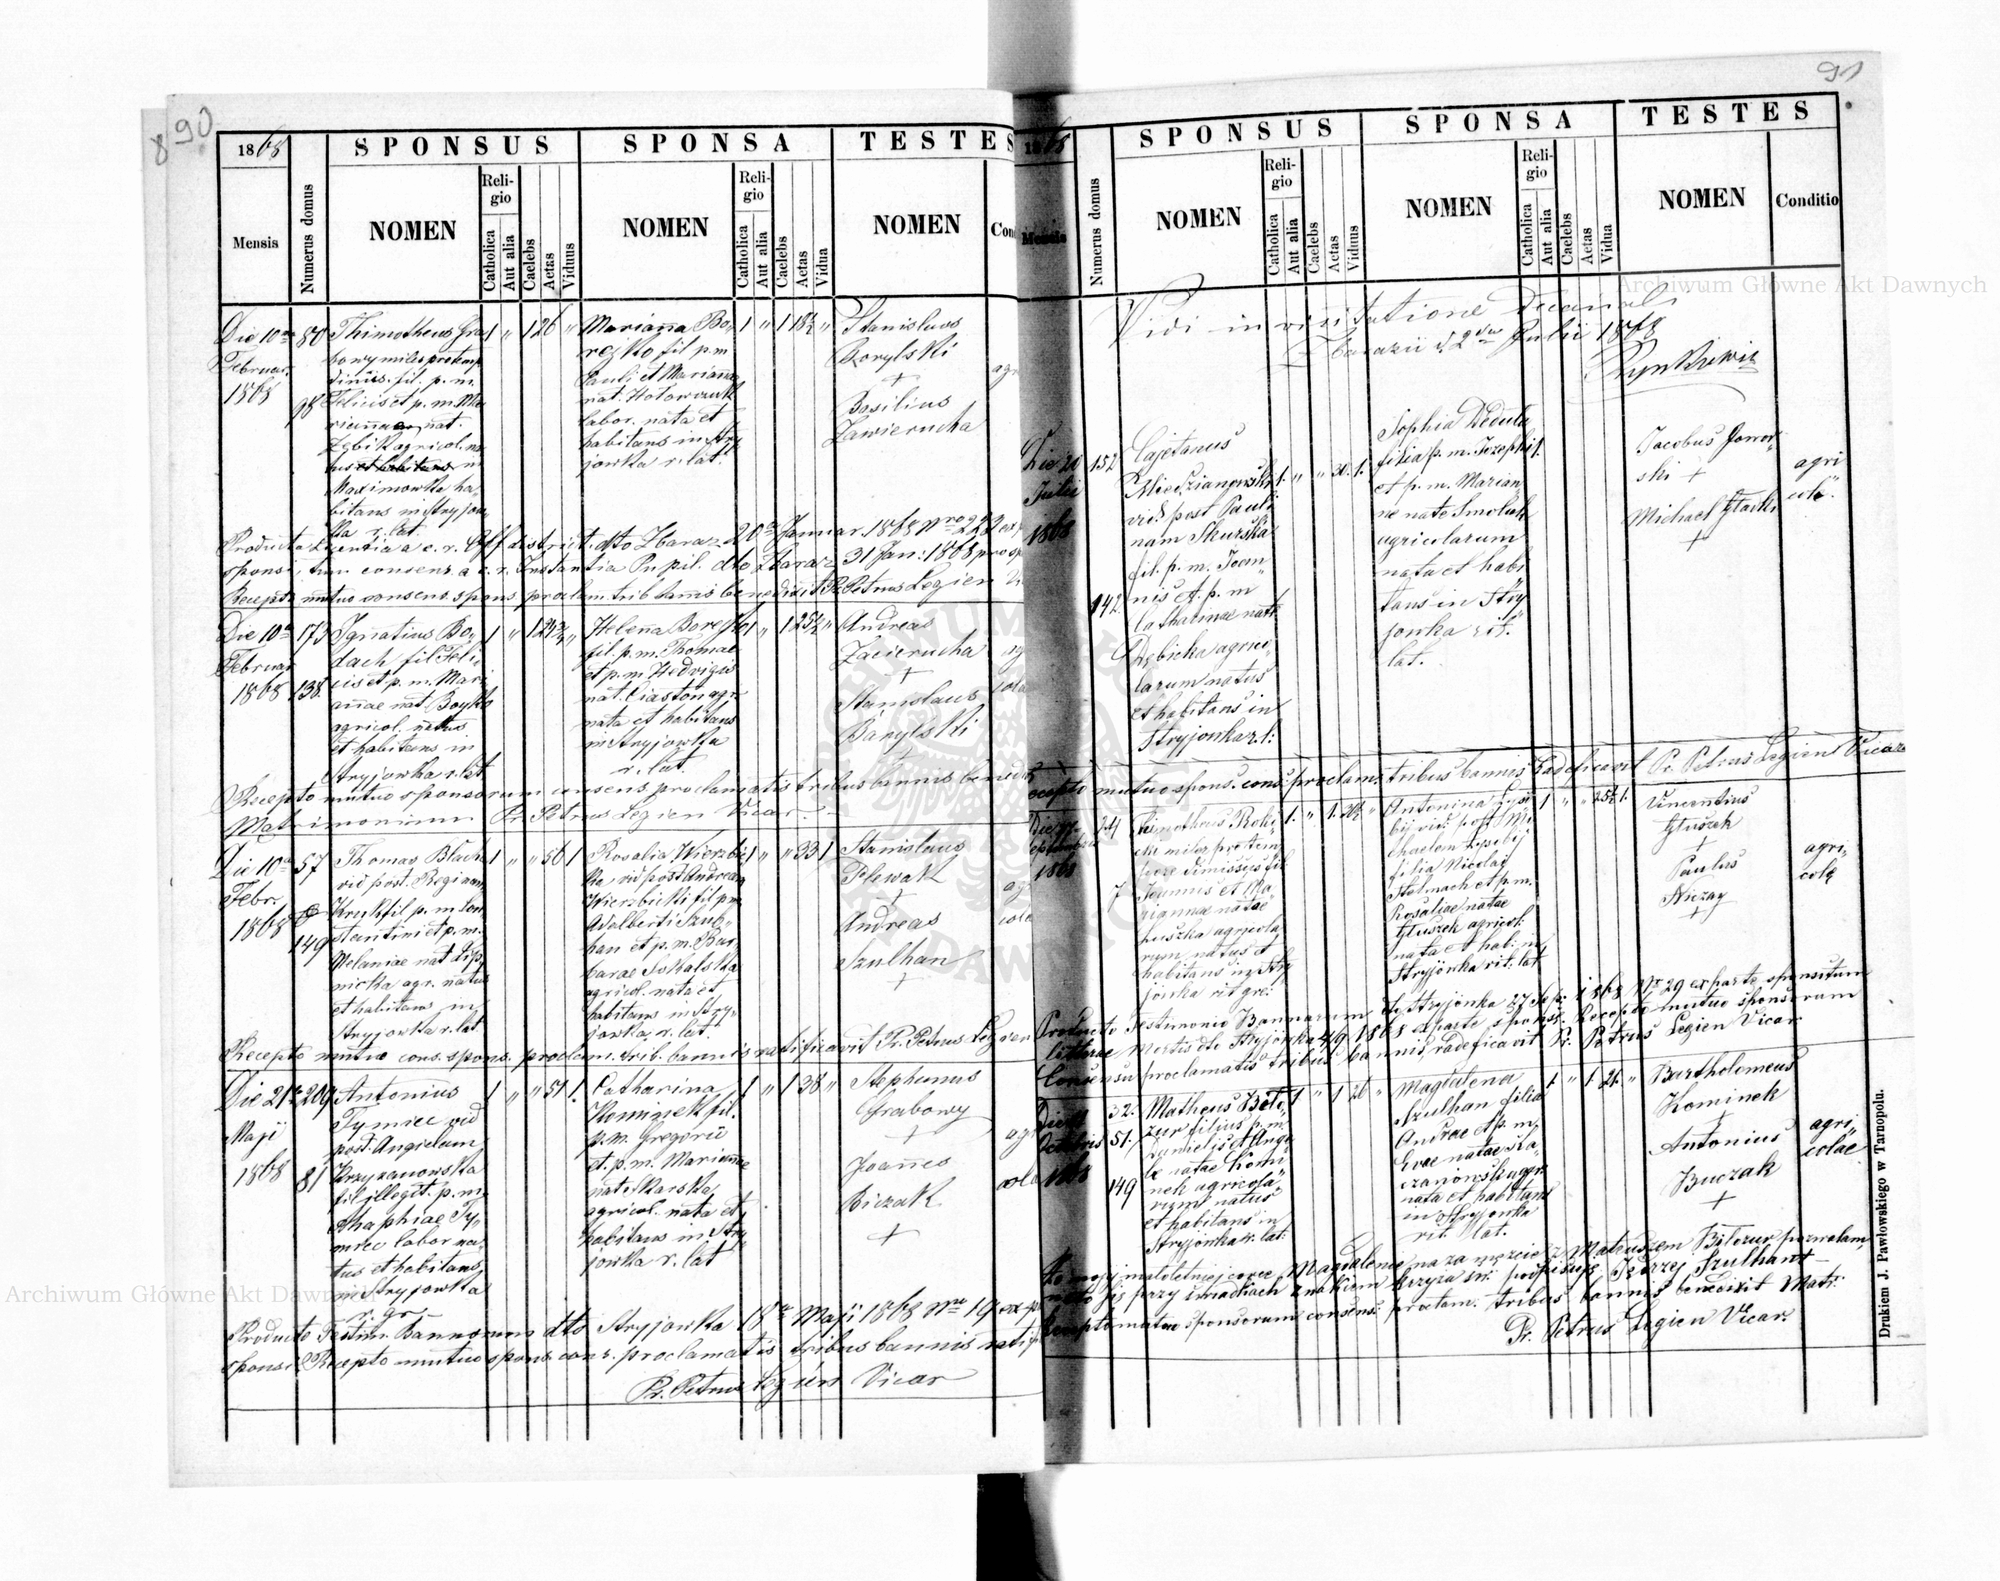 90
1868
SPONSUS
SPONSA
TESTES
Mensis
Numerus domus
NOMEN
Religio
Catholica
Aut alia
Caelebs
Aetas
Viduus
NOMEN
Religio
Catholica
Aut alia
Caelebs
Aetas
Vidua
NOMEN
Die 10ma
Februar.
1868
80
98
Thimotheus Gra-
bowy miles pro temp
dimis. fil. p. m.
Felicis et p. m. Ma
riannae nat.
agricol. na
tus et habitans in
Maximowka ha
bitans in Stryjow
ka r. lat.
1 " 1 26 "
Marianna Bo-
rejko fil p m
Pauli et Marianna
nat. Hotowczuk
labor. nata et
habitans in Stry
jowka r. lat.
1 " 1 18½ "
Stanislaus
Borylski
+
Basilius
Zawierucha
Producta Licentia a c. r. Off district. dto Zbaraz 20ma Januar. 1868 Nro 223 ex p
sponsi, tum consens. a c. r. Instantia Pupil. dto Zbaraz 31 Jan: 1868 pro sp
Recepto mutuo consens. spons proclam. trib bannis benedixit Pr. Petrus Legien
Die 10ma
Februar
1868
173
138
Ignatius Bo-
dach fil Feli
cis et p. m. Mari
annae nat. Boyko
agricol. natus
et habitans in
Stryjowka r. lat.
Helena Borejko
fil. p. m. Thomae
et p. m. Hedvigis
nat. Ciaston agr.
nata et habitans
in Stryjowka
r. lat.
1 " 1 25½ "
Andreas
Zacierucha
+
Stanislaus
Barylski
+
Recepto mutuo sponsorum consens proclamatis tribus bannis bened
Matrimonium Pr. Petrus Legien Vicar.
Die 10ma
Febr.
1868
57
149
Thomas Blach
vid post. Reginam
Kruk fil p. m. Con
stantini et p. m.
Melaniae nat Lip
nicka agr. natus
et habitans in
Stryjowka r. lat.
1 " " 56 1
Rosalia Wierzbic
ka vid post Andream
Wierzbicki fil p m
Adalberti Szul-
han et p. m. Bar
barae Sokalska
agricol. nata et
habitans in Stry-
jowka r. lat.
1 " " 33 1
Stanislaus
Plewak
+
Andreas
Szulhan
+
Recepto mutuo cons. spons. proclam. trib. bannis ratificavit Pr. Petrus Legien
Die 21a
Maji
1868
209
81
Antonius
Tymiec vid
post. Angielam
Krzyzanowska
fil illegit. p. m
Ahaphiae Ty-
miec labor na-
tus et habitans
in Stryjowka
r. gr.
1 " " 51 1.
Catharina
Kominek fil.
p. m. Gregorii
et. p. m. Marianae
nat. Karska
agricol. nata et
habitans in Stry-
jowka r. lat
1 " 1 38 "
Stephanus
Grabowy
+
Joannes
Biczak
+
Producto Testim. Bannorum dto Stryjowka 18va Maji 1868 Nro 19 ex p
sponsi Recepto mutuo spons. cons. proclamatis tribus bannis ratif
Pr. Petrus Legien Vicar
91
1868
SPONSUS
SPONSA
TESTES
Mensis
Numerus domus
NOMEN
Religio
Catholica
Aut alia
Caelebs
Aetas
Viduus
NOMEN
Religio
Catholica
Aut alia
Caelebs
Aetas
Vidua
NOMEN
Conditio
Vidi in visitatione Decanali
Zbarazii d. 2da Julii 1868
Die 20
Julii
1868
152
142
Cajetanus
Miedzianowski
vid post Pauli
nam Skurska
fil. p. m. Joan
nis et. p. m
Catharinae nat.
Dębicka agrico
larum natus
et habitans in
Stryjowka r. l:
1. " " 30. 1.
Sophia Dedula
filia p. m. Josephi
et p. m. Marian
ne nate Smoluk
agricolarum
nata et habi
tans in Stry
jowka rit.
lat.
Jacobus Jawor
ski +
Michael Gladki
+
agri
colae
Recepto mutuo spons. cons. proclam. tribus bannis radeficavit Pr. Petrus Legien Vicar
1868
24
7
Timotheus Roki
cki miles pro tem
pore dimissus fil
Joannis et Ma
riannae natae
agricola
rum natus et
habitans in Stry
jowka rit gr:
Antonina Lysi
bij vid. post Mi
chaelem Lysibij
filia Nicolai
Stelmach et p. m.
Rosaliae natae
Gluszek agricol:
nata et hab: in
Stryjowka rit. lat
Vincentius
Gluszek
+
Paulus
Niczay
+
agri
colae
Producto Testimonio Bannorum dto Stryjowka 27 Sep: 1868 Nr 29 ex parte sponsi tum
litterae Mortis dto Stryjowka 4/9 1868 ex parte sponsae. Recepto mutuo sponsorum
Consensu proclamatis tribus bannis radeficavit Pr. Petrus Legien Vicar.
Die 11
Octobris
1868
32.
51.
149
Matheus Beto
zur filius p. m.
Danielis et Ange
lae natae Komi
nek agricola
rum natus
et habitans in
Stryjowka r. lat:
1 " 1 26 "
Magdalena
Szulhan filia
Andreae et p. m.
Evae natae Ka
czanowska agr.
nata et habitans
in Stryjowka
rit. lat.
1. " 1. 21. "
Bartholomeus
Kominek
+
Antonius
Buczak
+
agri
colae
mojej małoletniej corce Magdalenie na za męzcie z Mateuszem Bitozur pozwalam
przy świadkach znakiem krzyża św. podpisuję Jędrzej Szulhan +
Recepto mutuo sponsorum consens: proclam. tribus bannis benedixit Matr:
Pr. Petrus Legien Vicar.
Drukiem J. Pawłowskiego w Tarnopolu.
Archiwum Główne Akt Dawnych
Archiwum Główne Akt Dawnych